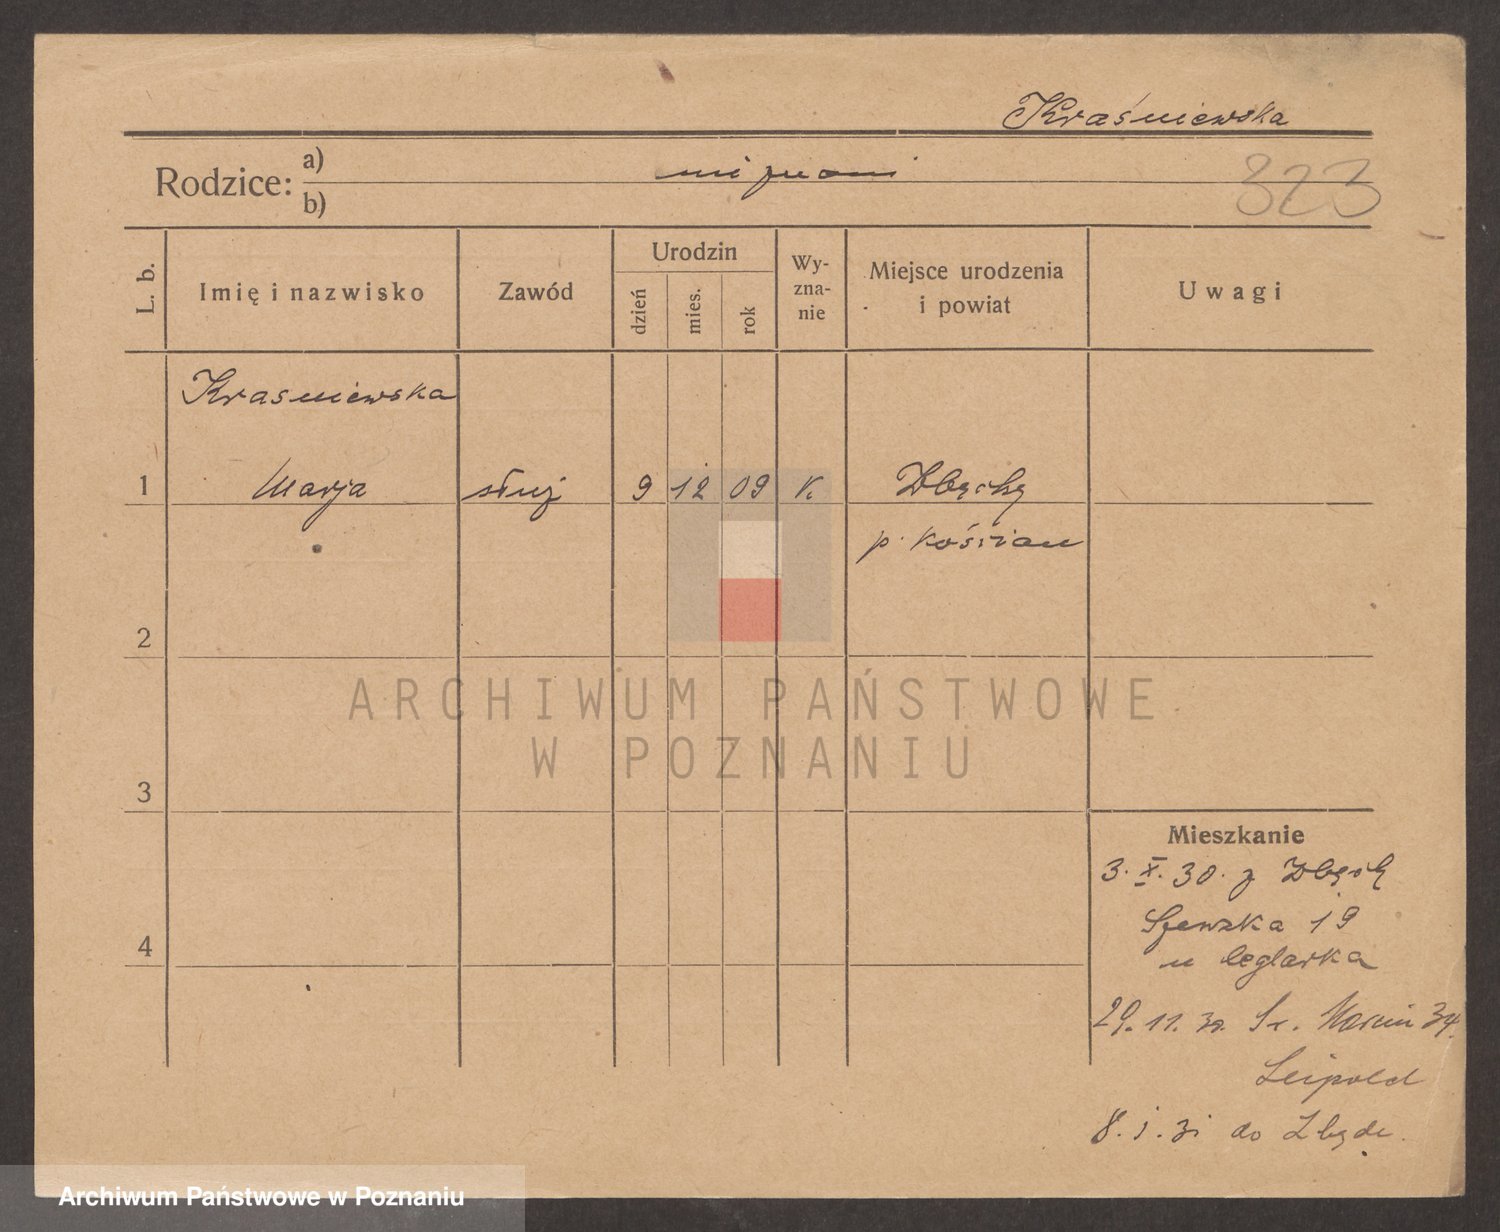 Kraśniewska
Rodzice: a)
b)
323
L. b.
Imię i nazwisko
Zawód
Urodzin
dzień
mies.
rok
Wy-
zna-
nie
Miejsce urodzenia
i powiat
Uwagi
Krasniewska
1 Marja służ 9 12 09 K. Zbęchy
p. Kościan
2
ARCHIWUM PAŃSTWOWE
W POZNANIU
3
Mieszkanie
3. X. 30. z Zbęch
Szewska 19
4
u Ceglarka
29. 11. 30. Św. Marcin 34.
Leipold
8. 1. 31 do
Archiwum Państwowe w Poznaniu